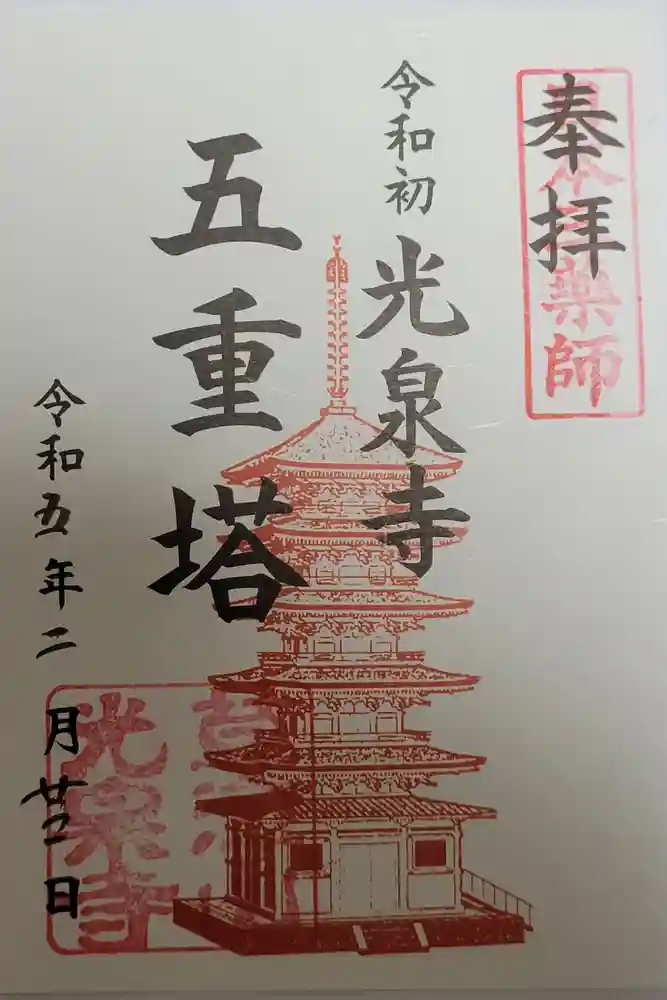 奉拝
薬師
令和初 光泉寺
五重塔
令和五年二月廿二日
光泉寺